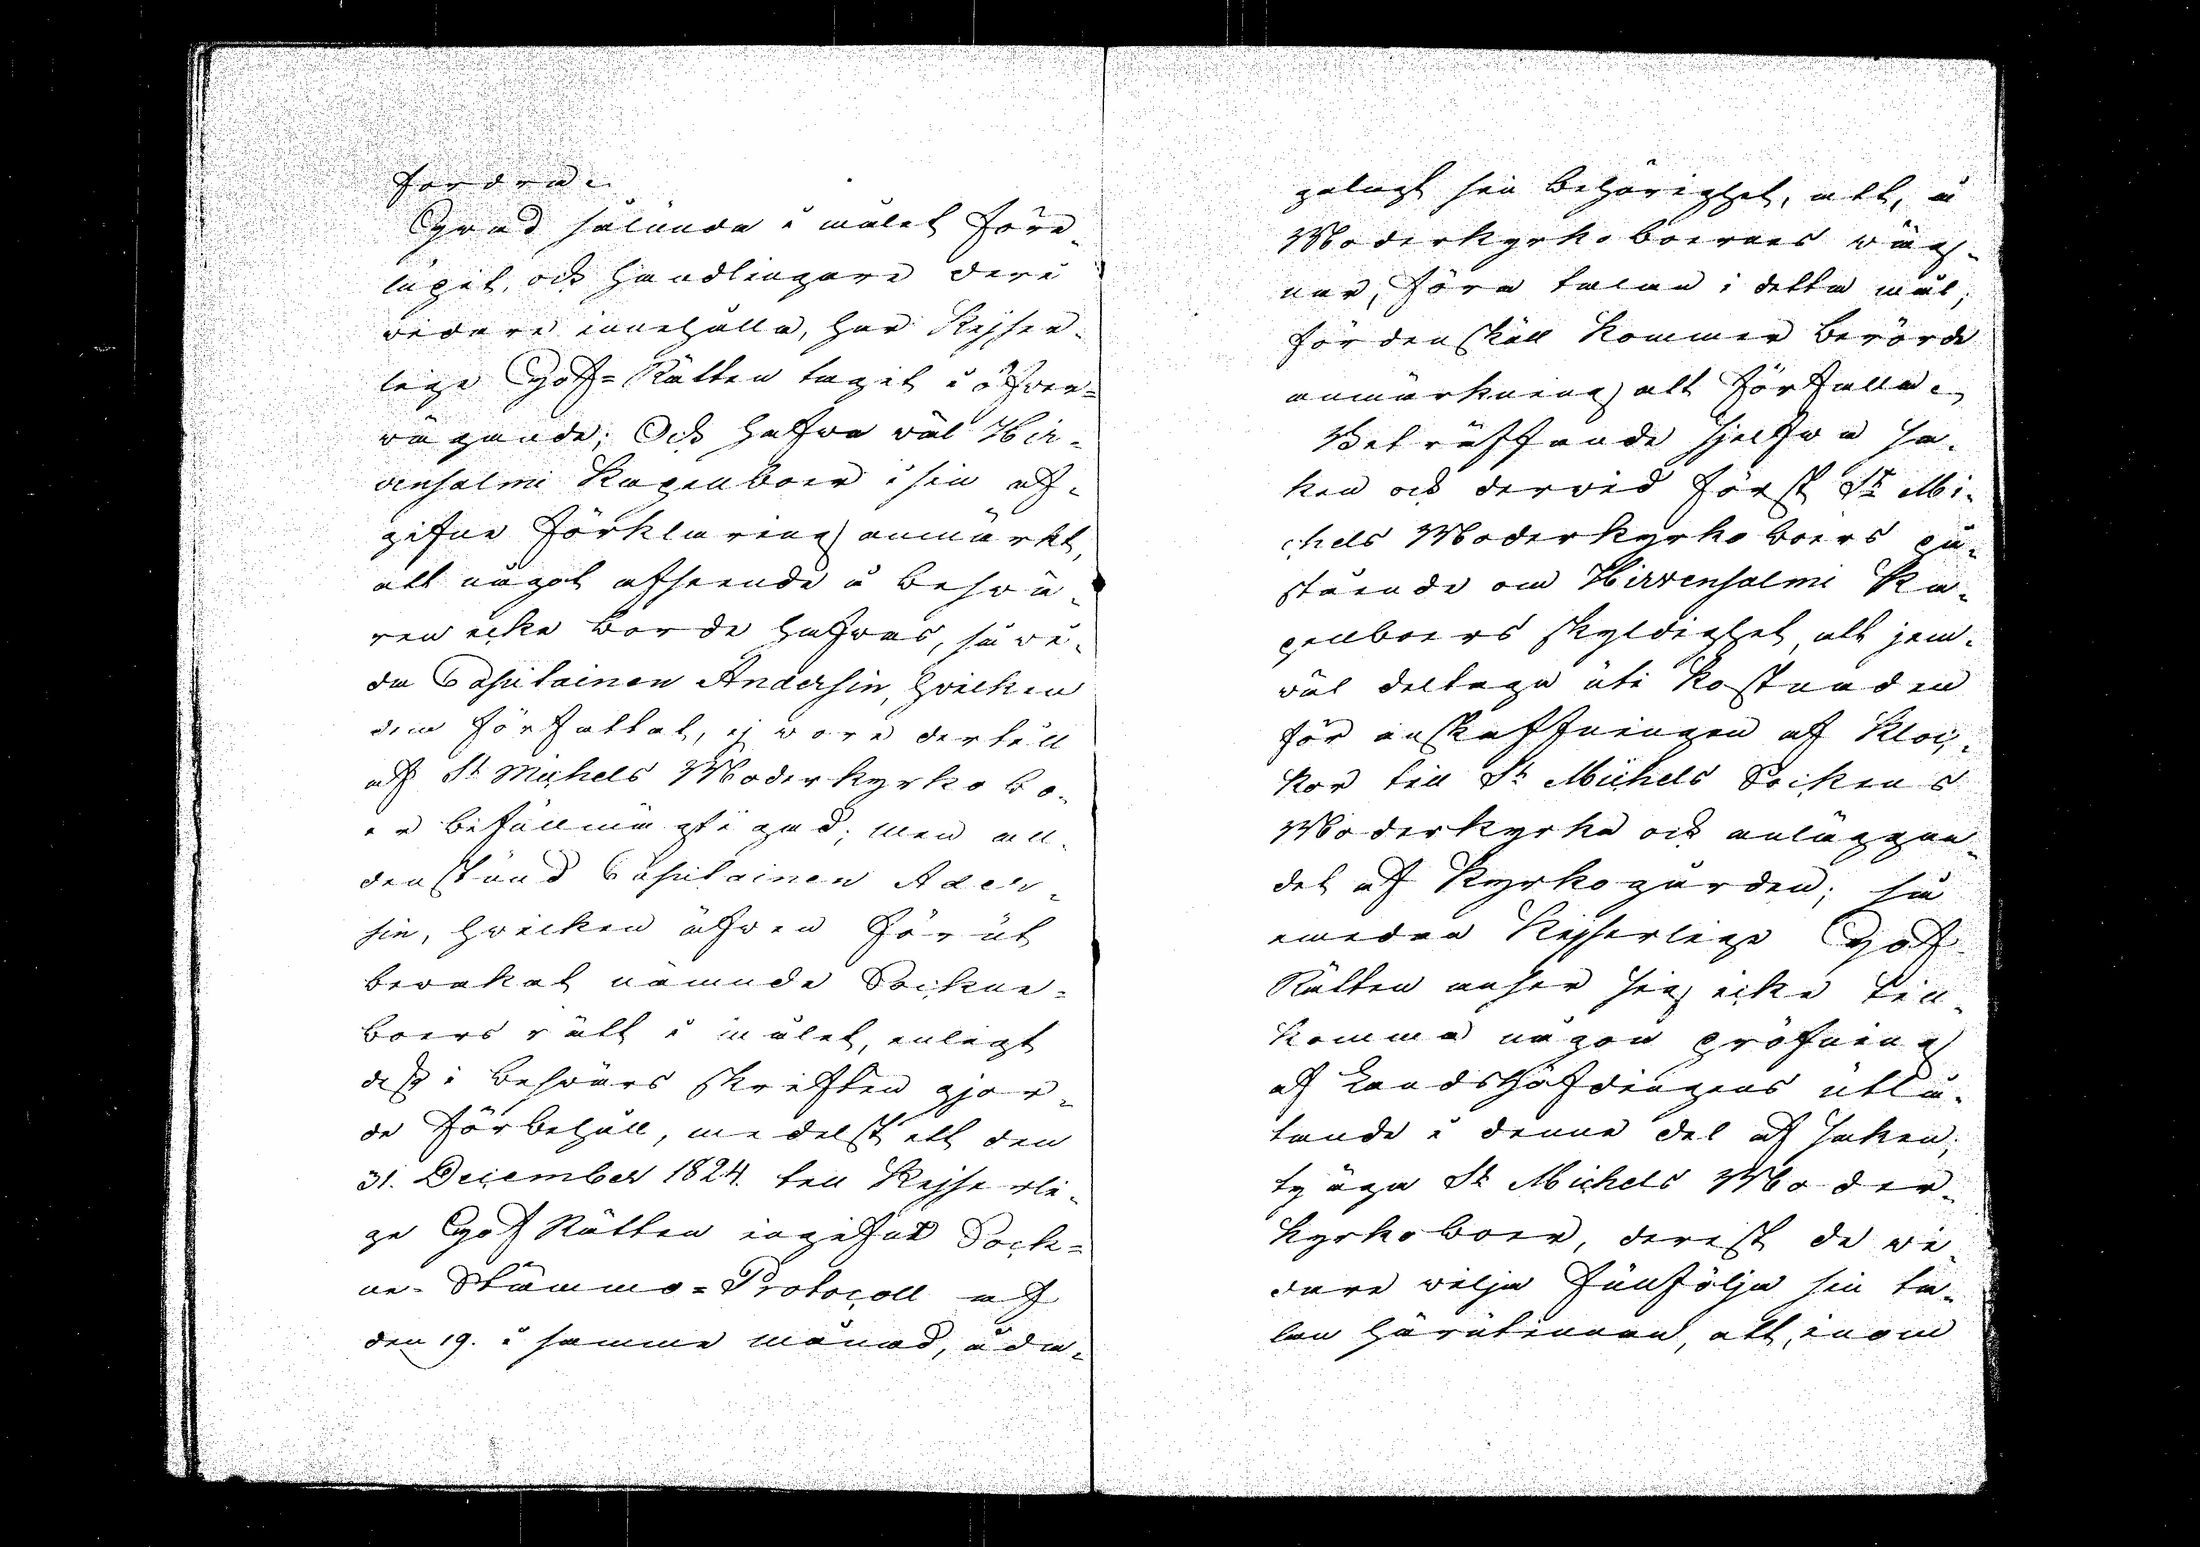 fordra.
Hvad sålunda i målet före-
lupit, och handlingarne deri
vidare innehålla, har Kejser-
lige Hof=Rätten tagit i öfver-
vägande; Och hafva väl Hir-
vensalmi Kapellboer i sin af-
gifne förklaring anmärkt,
att något afseende å besvä-
ren icke borde hafvas, såvi-
da Capitainen Andersin, hvilken
dem författat, ej vore dertill
af St Michels Moderkyrkobo-
er befullmägtigad; men all-
denstund Capitainen Ander-
sin, hvilken äfven förut
bevakat nämnde Sockne-
boers rätt i målet, enligt
dess i besvärs skriften gjor-
de förbehåll, medelst ett den
31. December 1824. till Kejserli-
ge Hof Rätten ingifvet Sock-
ne-Stämmo=Protocoll af
den 19. i samme månad, åda-
galagt sin behörighet, att, å
Moderkyrkoboernes väg-
nar, föra talan i detta mål;
för den skull kommer berörde
anmärkning att förfalla.
Beträffande sjelfva sa-
ken och dervid först St Mi-
chels Moderkyrkoboers på-
stående om Hirvensalmi Ka-
pellboers skyldighet, att jem-
väl deltaga uti kostnaden
för anskaffningen af Kloc-
kor till St Michels Sockens
Moderkyrka och anläggan-
det af Kyrkogården; så
emedan Kejserlige Hof
Rätten anser sig icke till-
komma någon pröfning
af Landshöfdingens utlå-
tande i denne del af saken;
ty äga St Michels Moder-
kyrkoboer, derest de vi-
dare vilja fullfölja sin ta-
lan härutinnan, att, inom